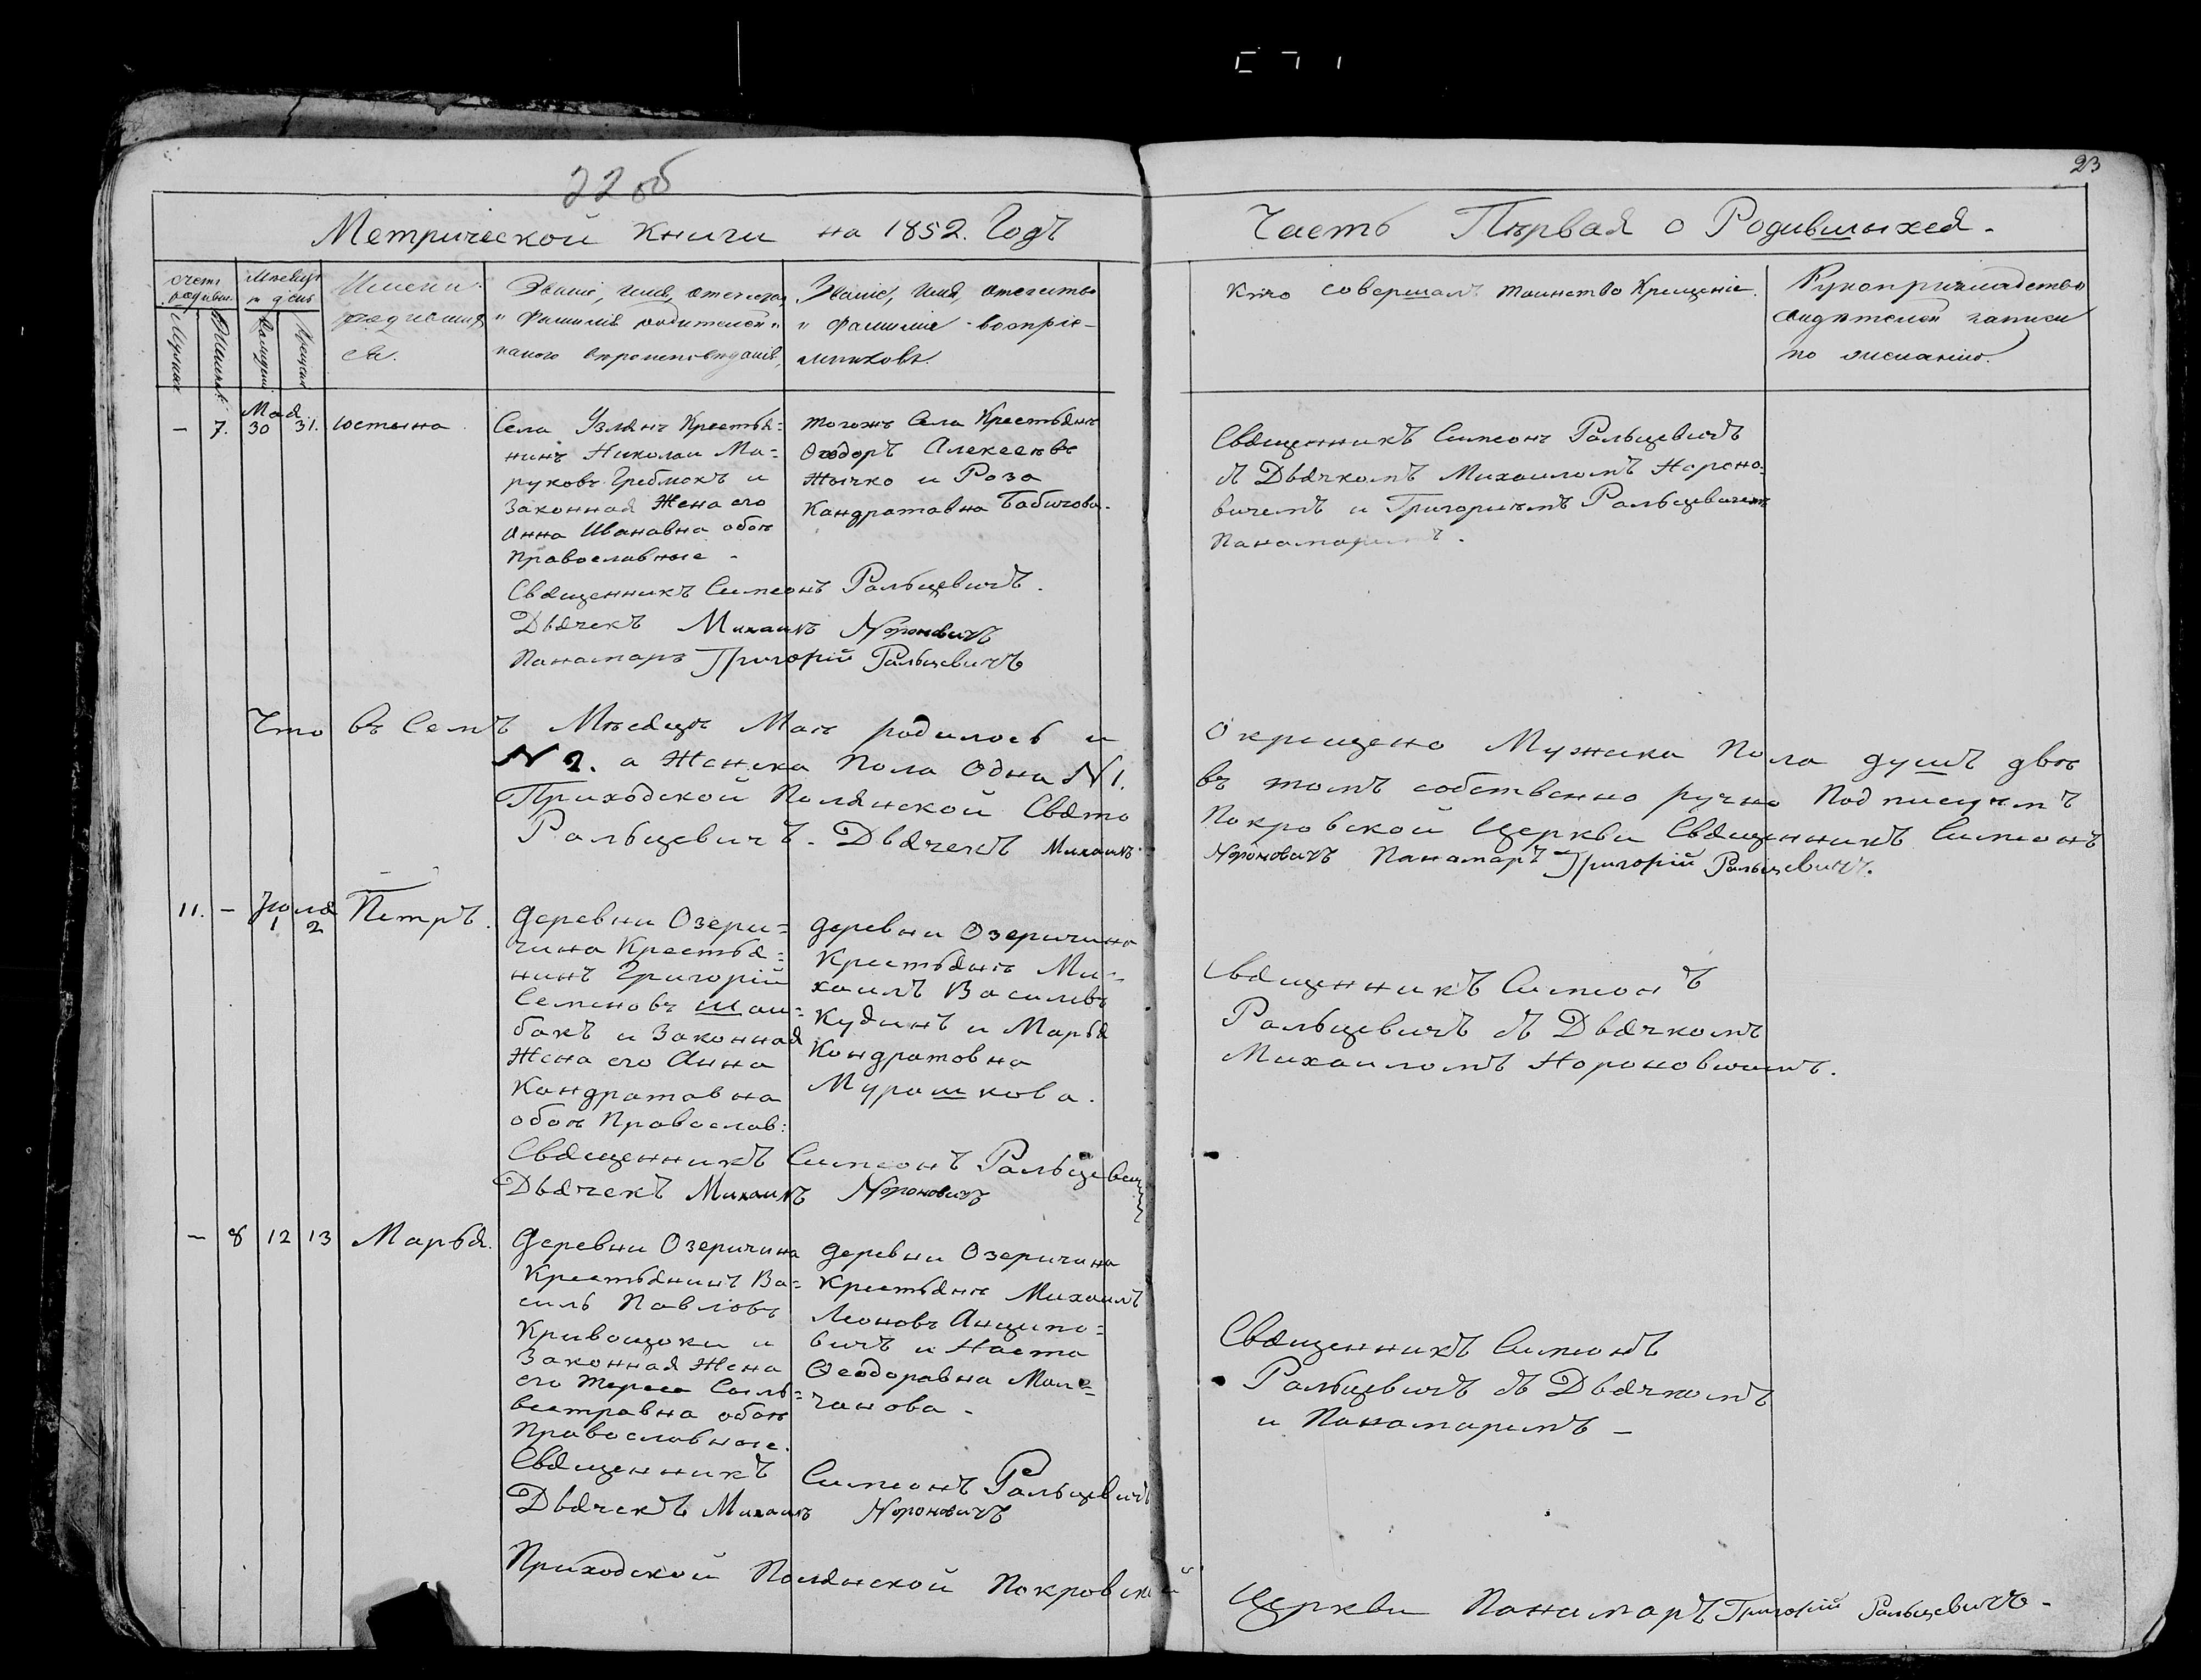 22 об
23
Метрической книги на 1852. Годъ
Часть Первая о Родившыхся.
счетъ родивш:
Мѣсяцъ и день
Мужеск
Женск:
Рожденія
Крещенія
Имена
родивших
ся.
Званіе, имя, отечество,
и Фамилія родителей и
какого вѣроисповѣданія,
Званіе, имя, отечество
и фамилія воспріе-
мниковъ.
Кто совершалъ таинство Крещенія.
Рукоприкладство
свидѣтелей записи
по желанію.
Мая
– 7. 30 31. Юстына
Села Узлянъ Крестья=
нинъ Николай Ма=
руковъ Гребмокъ и
Законная Жена его
Анна Ивановна обоѣ
Православные –
тогожъ Села Крестьянъ
Ѳеодоръ Алексеевъ
Жычко и Роза
Кандратавна Бабичова.
Священникъ Симеонъ Ральцевичъ
съ Дьячкомъ Михаиломъ Нороно-
вичемъ и Григоріемъ Ральцевичемъ
Панамаремъ.
Священникъ Симеонъ Ральцевичъ.
Дьячекъ Михаилъ Нороновичъ
Панамарь Григорій Ральцевичъ
Что въ Семъ Мѣсяцѣ Маѣ родилось и
окрещено Мужска Пола душъ двѣ
N 2. а Женска Пола Одна N 1.
въ томъ собственно ручно Подписуемъ
Приходской Полянской Свято
Покровской Церкви Священникъ Симеонъ
Ральцевичъ. Дьячекъ Михаилъ
Нороновичъ Панамарь Григорій Ральцевичъ.
11. – Іюня 1 2 Петръ.
Деревни Озери=
чина Крестья=
нинъ Григорій
Семеновъ Шаи=
бакъ и Законная
Жена его Анна
Кандратавна
обоѣ Православ:
деревни Озеричина
Крестьянъ Ми=
хаилъ Василевъ
Кудинъ и Марья
Кондратовна
Мурашкова.
Священникъ Симеонъ
Ральцевичъ съ Дьячкомъ
Михаиломъ Нороновичемъ.
Священникъ Симеонъ Ральцевичъ
Дьячекъ Михаилъ Нороновичъ
– 8 12 13 Марья.
Деревни Озеричина
Крестьянинъ Ва=
силь Павловъ
Кривощоки и
Законная Жена
его Тереса Силь=
вестравна обоѣ
Православные.
деревни Озеричина
Крестьянъ Михаилъ
Леоновъ Анципо=
вичъ и Наста
Ѳеодоравна Мол=
чанова –
Священникъ Симеонъ
Ральцевичъ съ Дьячкомъ
и Панамаремъ –
Священникъ Симеонъ Ральцевичъ
Дьячекъ Михаилъ Нороновичъ
Приходской Полянской Покровской
Церкви Панамарь Григорій Ральцевичъ.